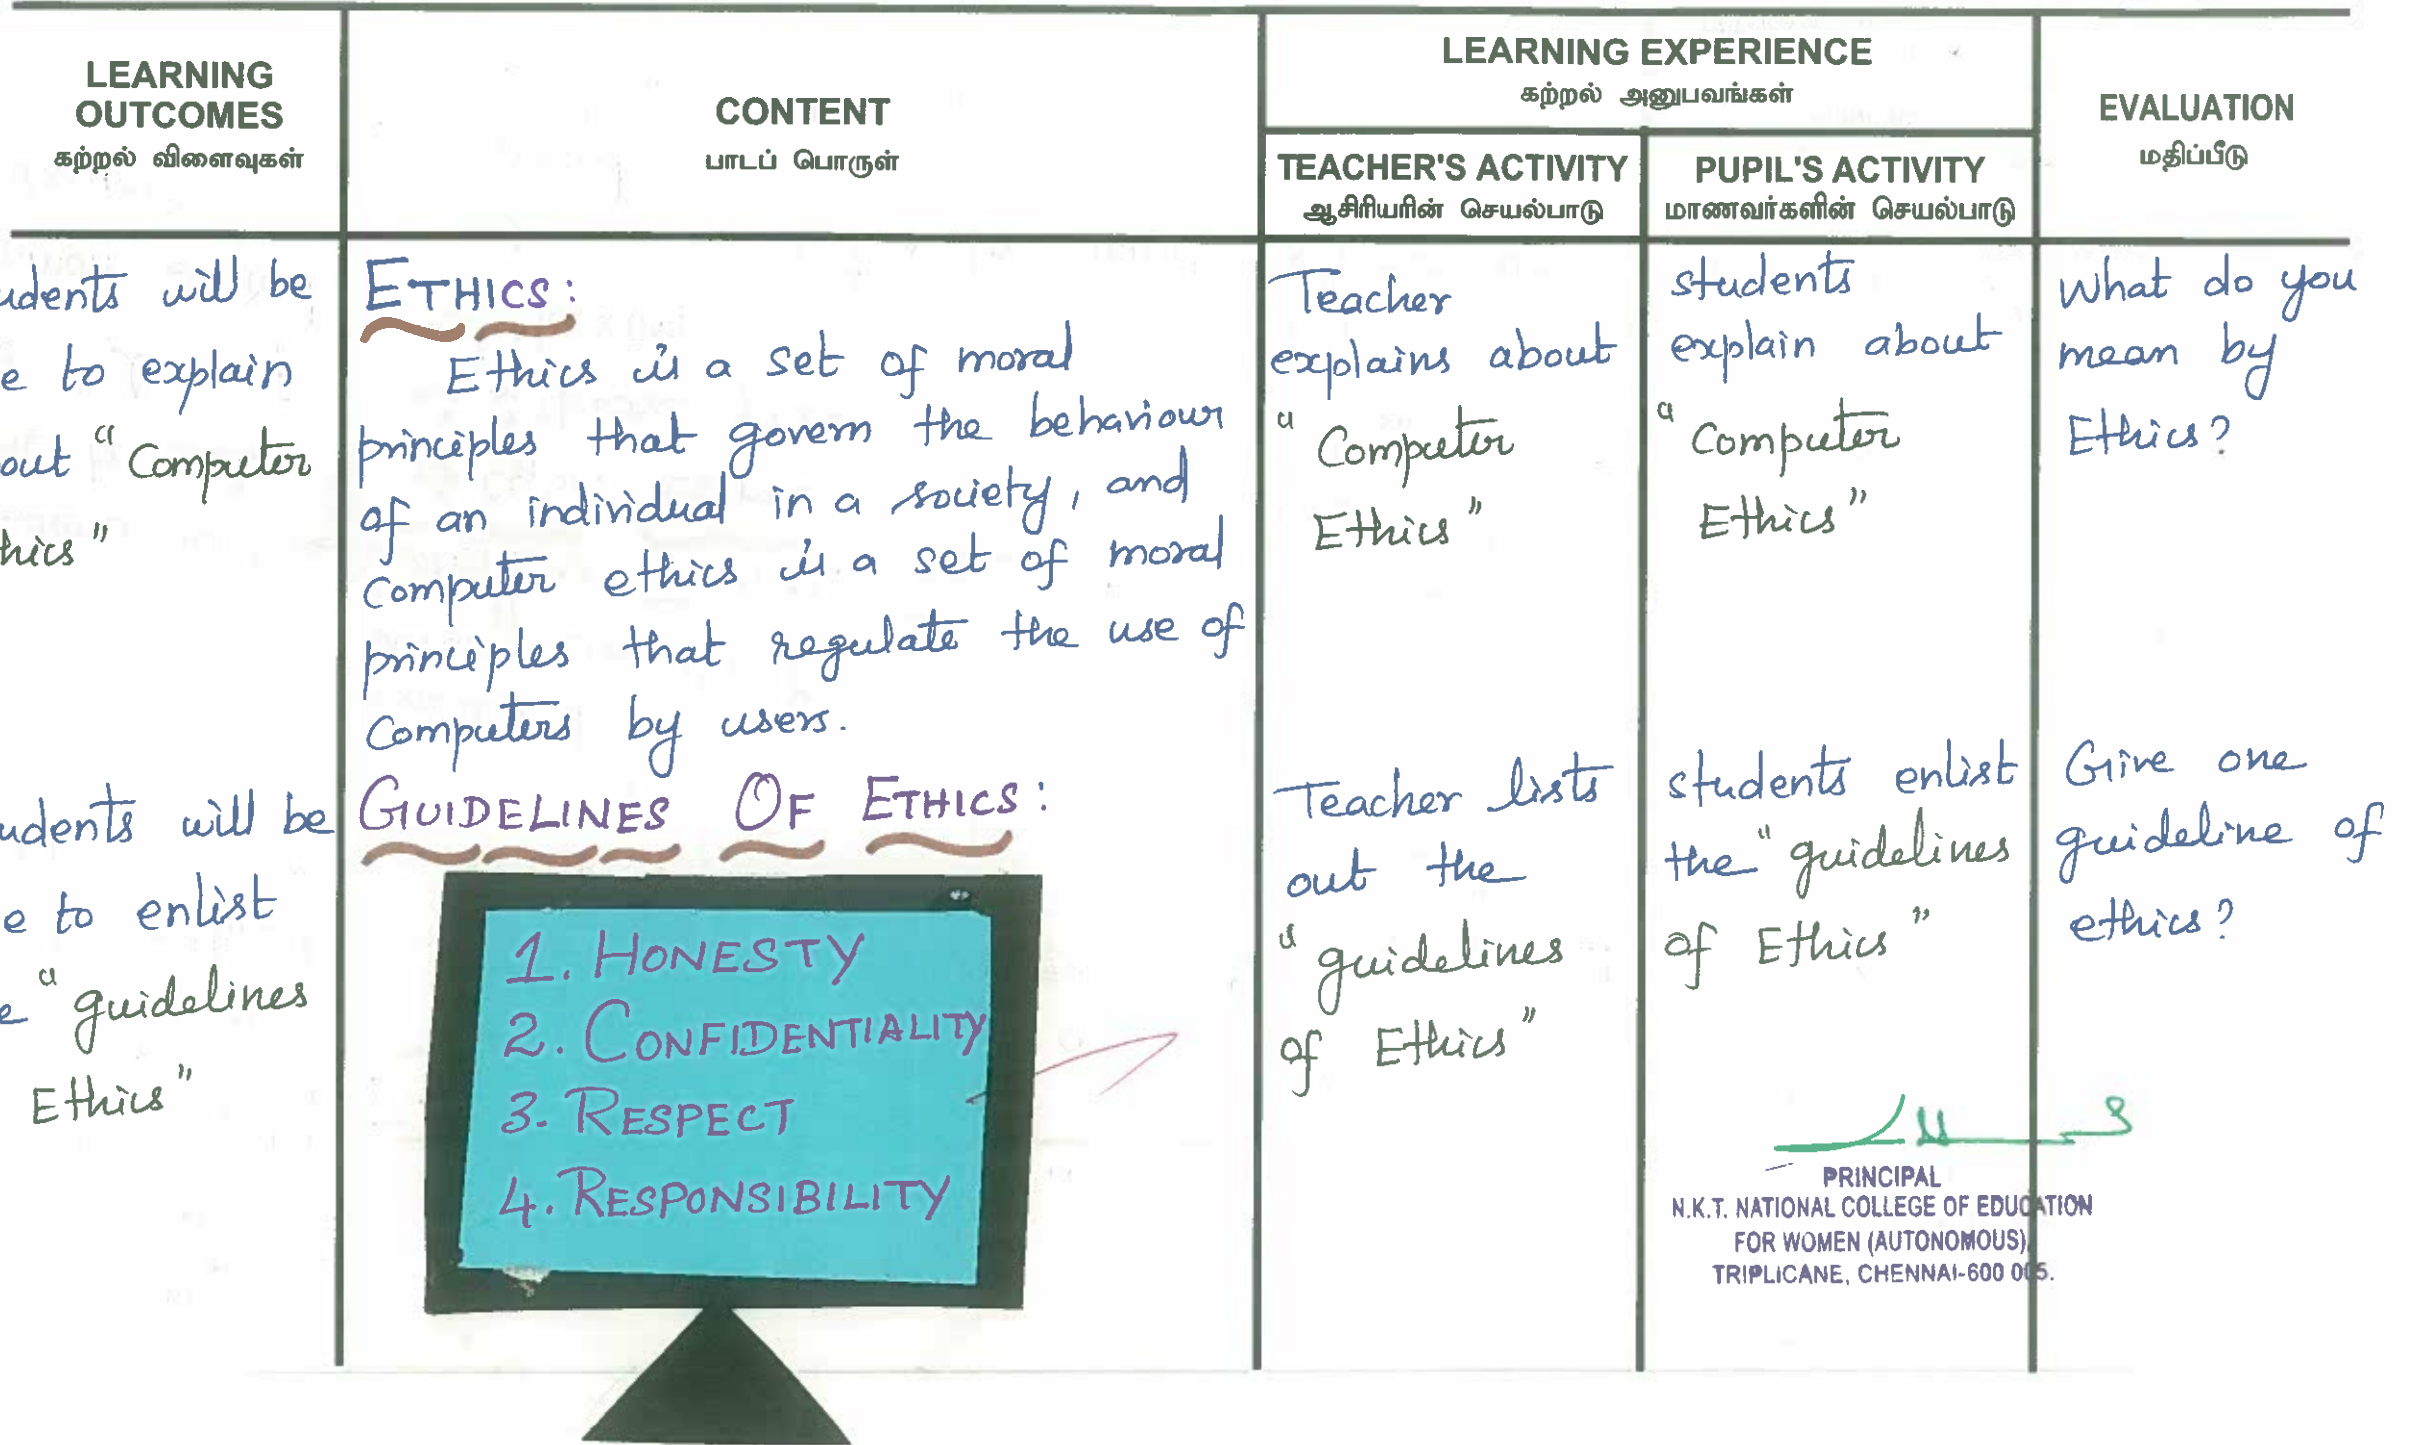 LEARNING
OUTCOMES
கற்றல் விளைவுகள்
CONTENT
பாடப் பொருள்
LEARNING EXPERIENCE
கற்றல் அனுபவங்கள்
TEACHER'S ACTIVITY
ஆசிரியரின் செயல்பாடு
PUPIL'S ACTIVITY
மாணவர்களின் செயல்பாடு
EVALUATION
மதிப்பீடு
udents will be
e to explain
out "Computer
hics"
ETHICS:
Ethics is a set of moral
principles that govern the behaviour
of an individual in a society, and
computer ethics is a set of moral
principles that regulate the use of
computers by users.
Teacher
explains about
"Computer
Ethics"
students
explain about
"Computer
Ethics"
What do you
mean by
Ethics?
udents will be
e to enlist
e "guidelines
Ethics"
GUIDELINES OF ETHICS:
1. HONESTY
2. CONFIDENTIALITY
3. RESPECT
4. RESPONSIBILITY
Teacher lists
out the
"guidelines
of Ethics"
students enlist
the "guidelines
of Ethics"
Give one
guideline of
ethics?
PRINCIPAL
N.K.T. NATIONAL COLLEGE OF EDUCATION
FOR WOMEN (AUTONOMOUS)
TRIPLICANE, CHENNAI-600 005.